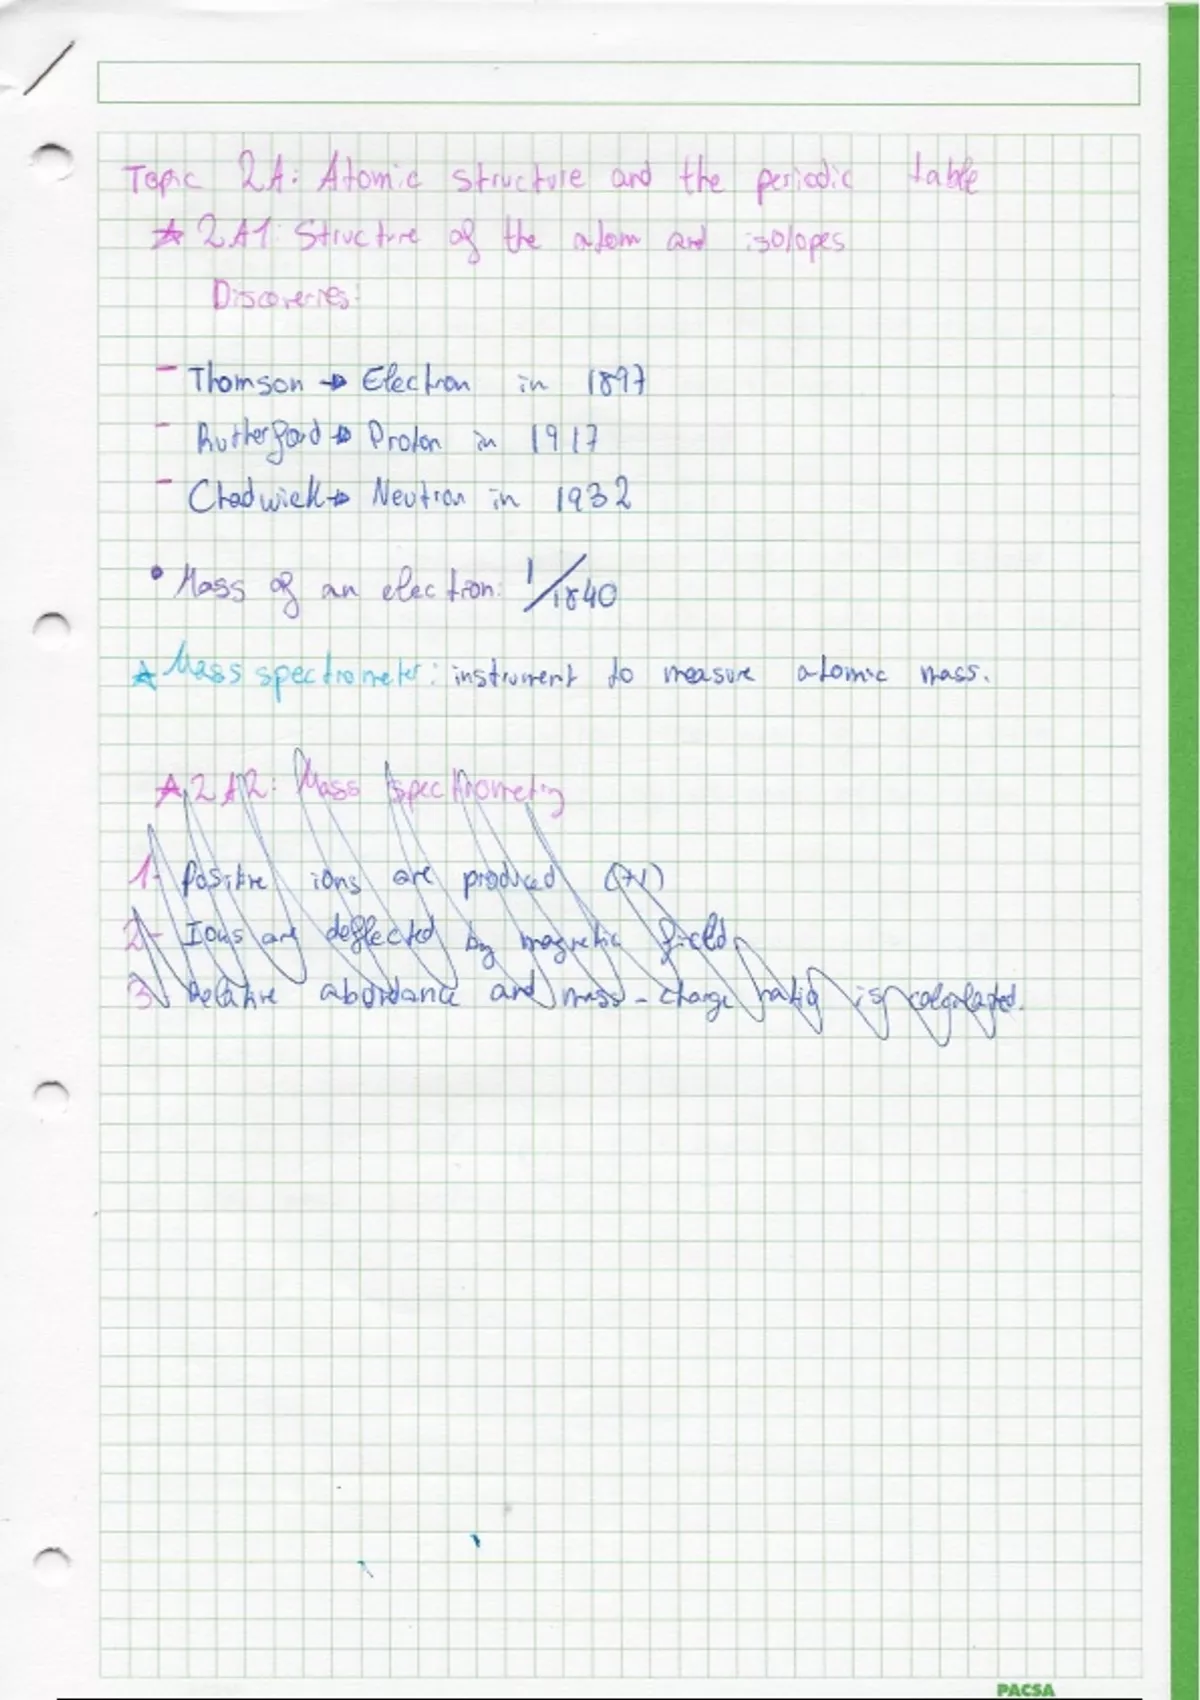 Topic 2A: Atomic structure and the periodic table
☆ 2A1: Structure of the atom and isotopes
Discoveries:
- Thomson → Electron in 1897
- Rutherford → Proton in 1917
- Chadwick → Neutron in 1932
• Mass of an electron: 1/1840
☆ Mass spectrometer: instrument to measure atomic mass.
☆ 2A2: Mass spectrometry
1- Positive ions are produced (+1)
2- Ions are deflected by magnetic field.
3- Relative abundance and mass-charge ratio is calculated.
PACSA